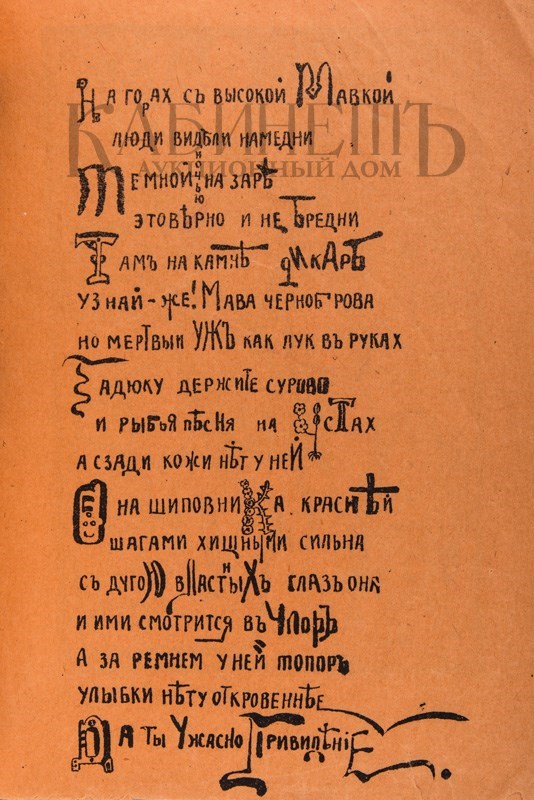 На горах съ высокой Мавкой
КАБИНЕТЪ
люди видѣли намедни
АУКЦИОННЫЙ ДОМ
Темной ночью на зарѣ
Это вѣрно и не бредни
Тамъ на камнѣ дикарь
узнай-же! Мава черноброва
но мертвый УЖЪ как лук въ руках
Гадюку держите сурово
и рыбья пѣсня на устах
а сзади кожи нѣт у ней
Она шиповника краснѣй
шагами хищными сильна
съ дугою властных глазъ она
и ими смотрится въ упоръ
А за ремнем у ней топоръ
улыбки нѣту откровеннѣе
Да ты ужасно привидѣніе